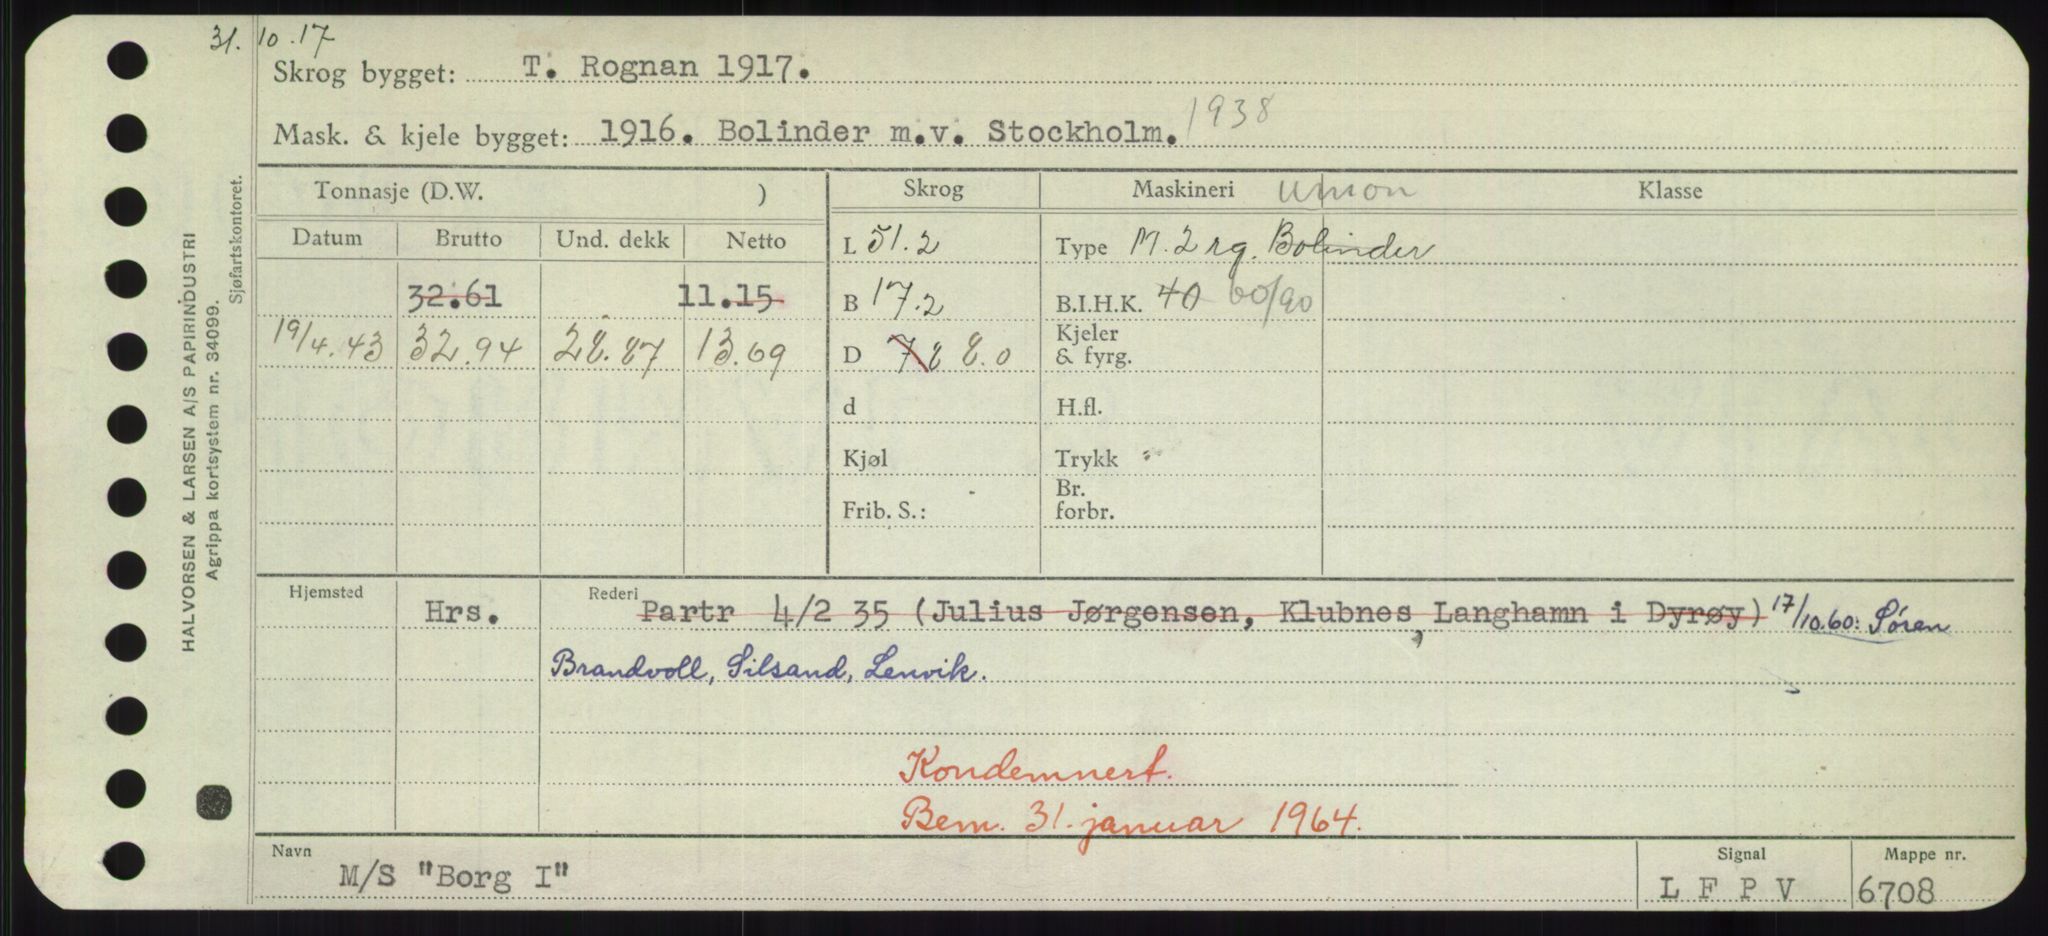 31. 10. 17
Skrog bygget: T. Rognan 1917.
Mask. & kjele bygget: 1916. Bolinder m.v. Stockholm. 1938
Tonnasje (D.W. ) Skrog Maskineri Union Klasse
Datum Brutto Und. dekk Netto L 51.2 Type M. 2 rg. Bolinder
32.61 11.15 B 17.2 B.I.H.K. 40 60/90
19/4.43 32.94 28.87 13.69 D 7.8 8.0 Kjeler & fyrg.
d H.fl.
Kjøl Trykk
Frib. S.: Br. forbr.
Hjemsted Hrs. Rederi Partr 4/2 35 (Julius Jørgensen, Klubnes, Langhamn i Dyrøy) 17/10.60: Søren
Brandvoll, Silsand, Lenvik.
Kondemnert.
Bem. 31. januar 1964.
Navn Signal Mappe nr.
M/S "Borg I" L F P V 6708
HALVORSEN & LARSEN A/S PAPIRINDUSTRI
Agrippa kortsystem nr. 34099.
Sjøfartskontoret.